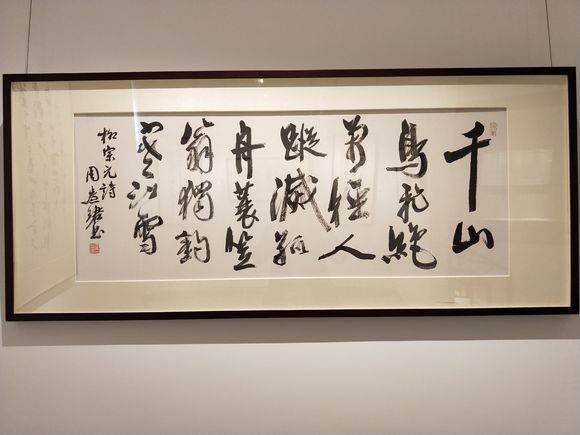 千山
鳥飛絕
萬徑人
蹤滅孤
舟蓑笠
翁獨釣
寒江雪
柳宗元詩
周 書